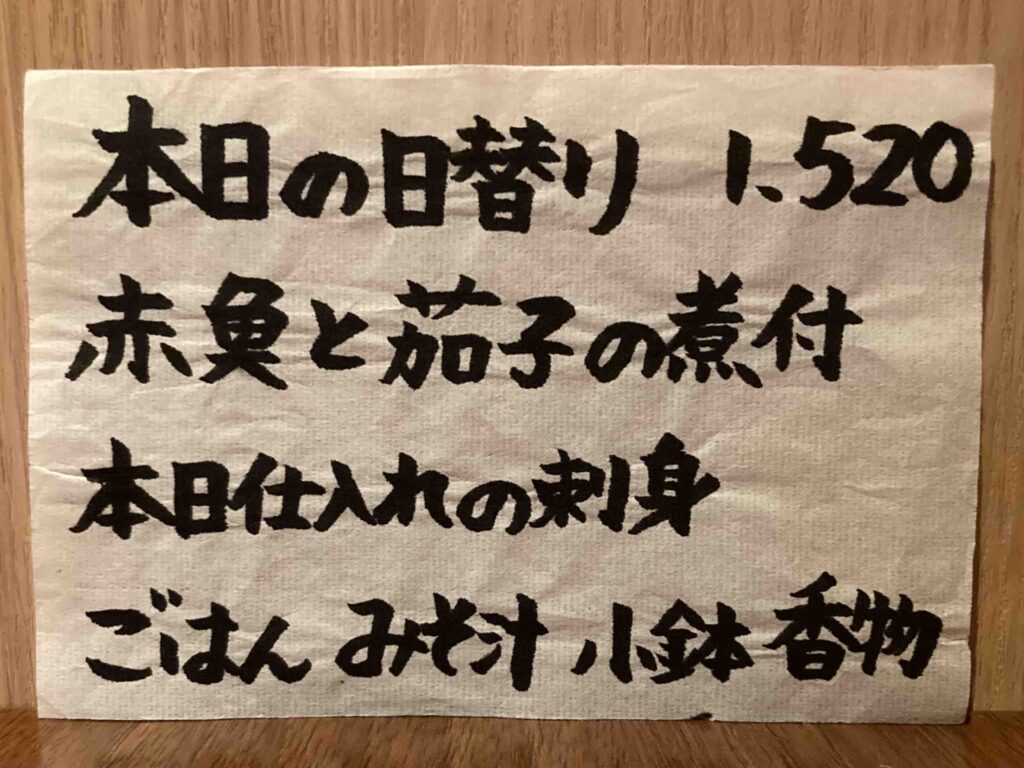 本日の日替り 1、520
赤魚と茄子の煮付
本日仕入れの刺身
ごはん みそ汁 小鉢 香物